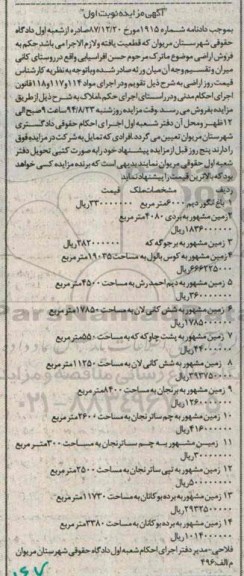 "آگهی مزایده نوبت اول"
بموجب دادنامه شماره ۱۹۱۵ مورخ ۸۷/۱۲/۲۰ صادره از شعبه اول دادگاه
حقوقی شهرستان مریوان که قطعیت یافته و لازم الاجرا می باشد حکم به
فروش اراضی موضوع ماترک مرحوم حسن افراسیابی واقع در روستای کانی
میران و تقسیم وجه آن میان ورثه صادر شده و با توجه به نظریه کارشناس
قیمت روز اراضی به شرح ذیل تقویم و در اجرای مواد ۱۱۴ و ۱۱۷ و ۱۱۸ قانون
اجرای احکام مدنی و در راستای اجرای حکم، املاک به شرح ذیل از طریق
مزایده بفروش می رسد. وقت مزایده روز شنبه ۹۴/۸/۲۳ ساعت ۹ صبح الی
۱۲ ظهر و محل آن دفتر شعبه اول اجرای احکام حقوقی دادگستری
شهرستان مریوان تعیین می گردد. افرادی که تمایل به شرکت در مزایده فوق
را دارند پنج روز قبل از مزایده پیشنهاد خود را به صورت کتبی تحویل دفتر
شعبه اول حقوقی مریوان نمایند. بدیهی است که برنده مزایده کسی خواهد
بود که بالاترین قیمت را پیشنهاد نماید.
ردیف مشخصات ملک قیمت
۱ باغ انگور دیم ۶۰۰۰ متر مربع ۳۳۰۰۰۰۰۰۰ ریال
۲ زمین مشهور به بردی ۴۰۸۰ متر مربع
۱۸۳۶۰۰۰۰۰ ریال
۳ زمین مشهور به برجوگه که ۳۸۲۰۰۰۰۰۰ ریال
۴ زمین مشهور به کوس بالول به مساحت ۱۹۰۳۵ متر مربع
۶۶۶۲۲۵۰۰۰ ریال
۵ زمین مشهور به دیم احمد رش به مساحت ۴۵۰۰ متر مربع
۳۶۰۰۰۰۰۰۰ ریال
۶ زمین مشهور به شش کانی لان به مساحت ۱۷۸۵۰ متر مربع
۱۷۸۵۰۰۰۰۰۰ ریال
۷ زمین مشهور به پشت چام که که به مساحت ۵۵۰ متر مربع
۴۴۰۰۰۰۰۰ ریال
۸ زمین مشهور به شش کانی لان به مساحت ۱۱۲۵۰ متر مربع
۳۹۳۷۵۰۰۰۰ ریال
۹ زمین مشهور به برنجان به مساحت ۸۴۰۰ متر مربع
۱۲۶۰۰۰۰۰۰۰ ریال
۱۰ زمین مشهور به چم سانرنجان به مساحت ۲۶۰۰ متر مربع
۴۱۶۰۰۰۰۰۰ ریال
۱۱ زمین مشهور به چم سانرنجان به مساحت ۳۰۰ متر مربع
۳۰۰۰۰۰۰۰ ریال
۱۲ زمین مشهور به تپی سانرنجان به مساحت ۲۵۰۰ متر مربع
۵۰۰۰۰۰۰۰۰ ریال
۱۳ زمین مشهور به برده بوکانان به مساحت ۱۱۷۳۰ متر مربع
۲۹۳۲۵۰۰۰۰۰ ریال
۱۴ زمین مشهور به برده بوکانان به مساحت ۳۳۸۰ متر مربع
۱۰۱۴۰۰۰۰۰۰ ریال
فلاحی - مدیر دفتر اجرای احکام شعبه اول دادگاه حقوقی شهرستان مریوان
م الف ۴۹۶